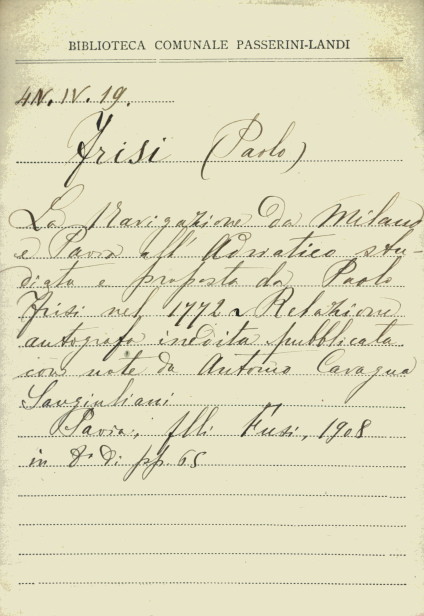 BIBLIOTECA COMUNALE PASSERINI-LANDI
4N. IV. 19.
Frisi (Paolo)
La Navigazione da Milano
e Pavia all'Adriatico stu-
diata e proposta da Paolo
Frisi nel 1772. Relazione
autografa inedita pubblicata
con note da Antonio Cavagna
Sangiuliani
Pavia, flli Fusi, 1908
in 8° di pp. 65